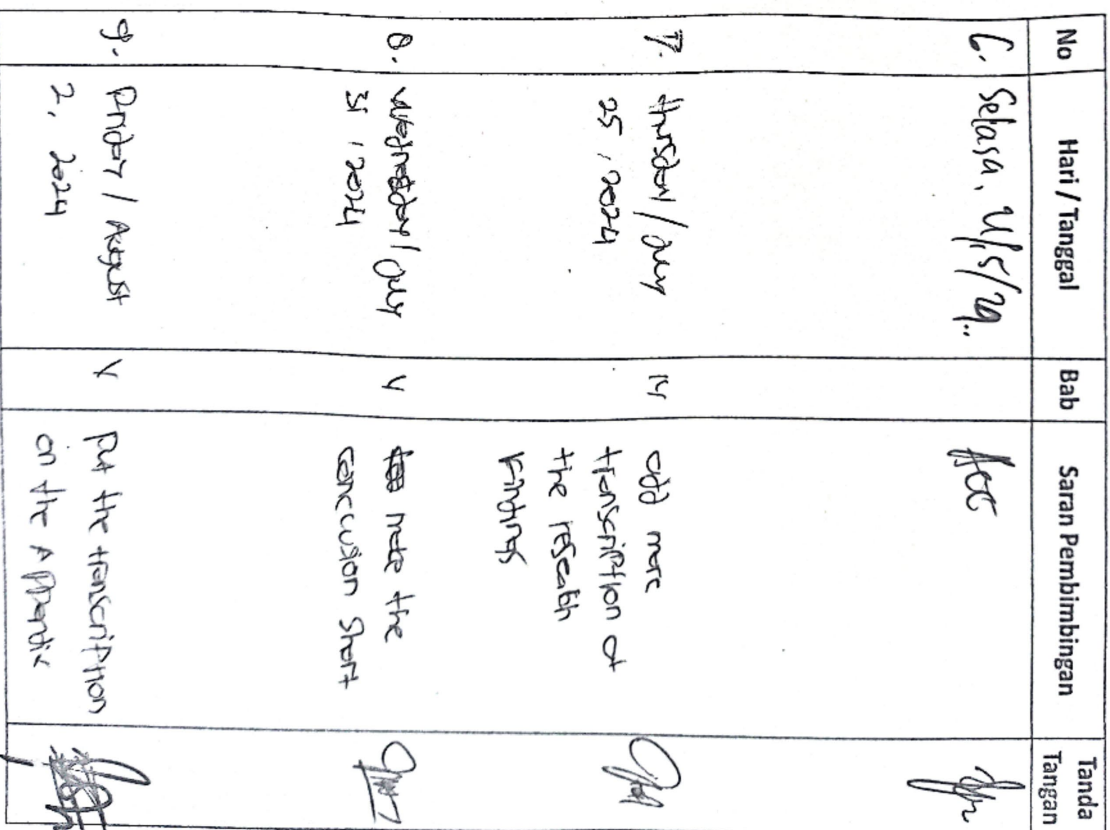 No Hari / Tanggal Bab Saran Pembimbingan Tanda
Tangan
6. Selasa, 21/5/24. Acc
7. Thursday / July IV add more
25, 2024 transcription at
the research
Findings
8. Wednesday / July V make the
31, 2024 conclusion short
9. Friday / August V Put the transcription
2, 2024 on the Appendix